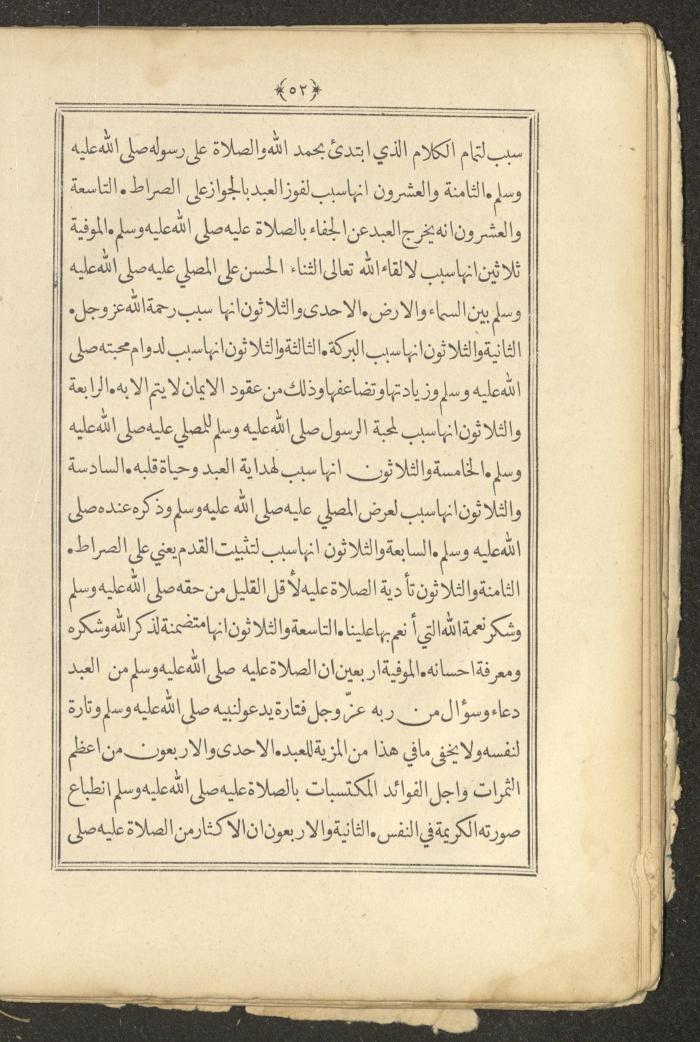 ﴿٥٢﴾
سبب لتمام الكلام الذي ابتدئ بحمد الله والصلاة على رسوله صلى الله عليه
وسلم • الثامنة والعشرون انها سبب لفوز العبد بالجواز على الصراط • التاسعة
والعشرون انه يخرج العبد عن الجفاء بالصلاة عليه صلى الله عليه وسلم • الموفية
ثلاثين انها سبب لالقاء الله تعالى الثناء الحسن على المصلي عليه صلى الله عليه
وسلم بين السماء والارض • الاحدى والثلاثون انها سبب رحمة الله عز وجل •
الثانية والثلاثون انها سبب البركة • الثالثة والثلاثون انها سبب لدوام محبته صلى
الله عليه وسلم وزيادتها وتضاعفها وذلك من عقود الايمان لا يتم الا به • الرابعة
والثلاثون انها سبب لمحبة الرسول صلى الله عليه وسلم للمصلي عليه صلى الله عليه
وسلم • الخامسة والثلاثون انها سبب لهداية العبد وحياة قلبه • السادسة
والثلاثون انها سبب لعرض المصلي عليه صلى الله عليه وسلم وذكره عنده صلى
الله عليه وسلم • السابعة والثلاثون انها سبب لتثبيت القدم يعني على الصراط •
الثامنة والثلاثون تأدية الصلاة عليه لأقل القليل من حقه صلى الله عليه وسلم
وشكر نعمة الله التي أنعم بها علينا • التاسعة والثلاثون انها متضمنة لذكر الله وشكره
ومعرفة احسانه • الموفية اربعين ان الصلاة عليه صلى الله عليه وسلم من العبد
دعاء وسؤال من ربه عزّ وجل فتارة يدعو لنبيه صلى الله عليه وسلم وتارة
لنفسه ولا يخفى ما في هذا من المزية للعبد • الاحدى والاربعون من اعظم
الثمرات واجل الفوائد المكتسبات بالصلاة عليه صلى الله عليه وسلم انطباع
صورته الكريمة في النفس • الثانية والاربعون ان الاكثار من الصلاة عليه صلى